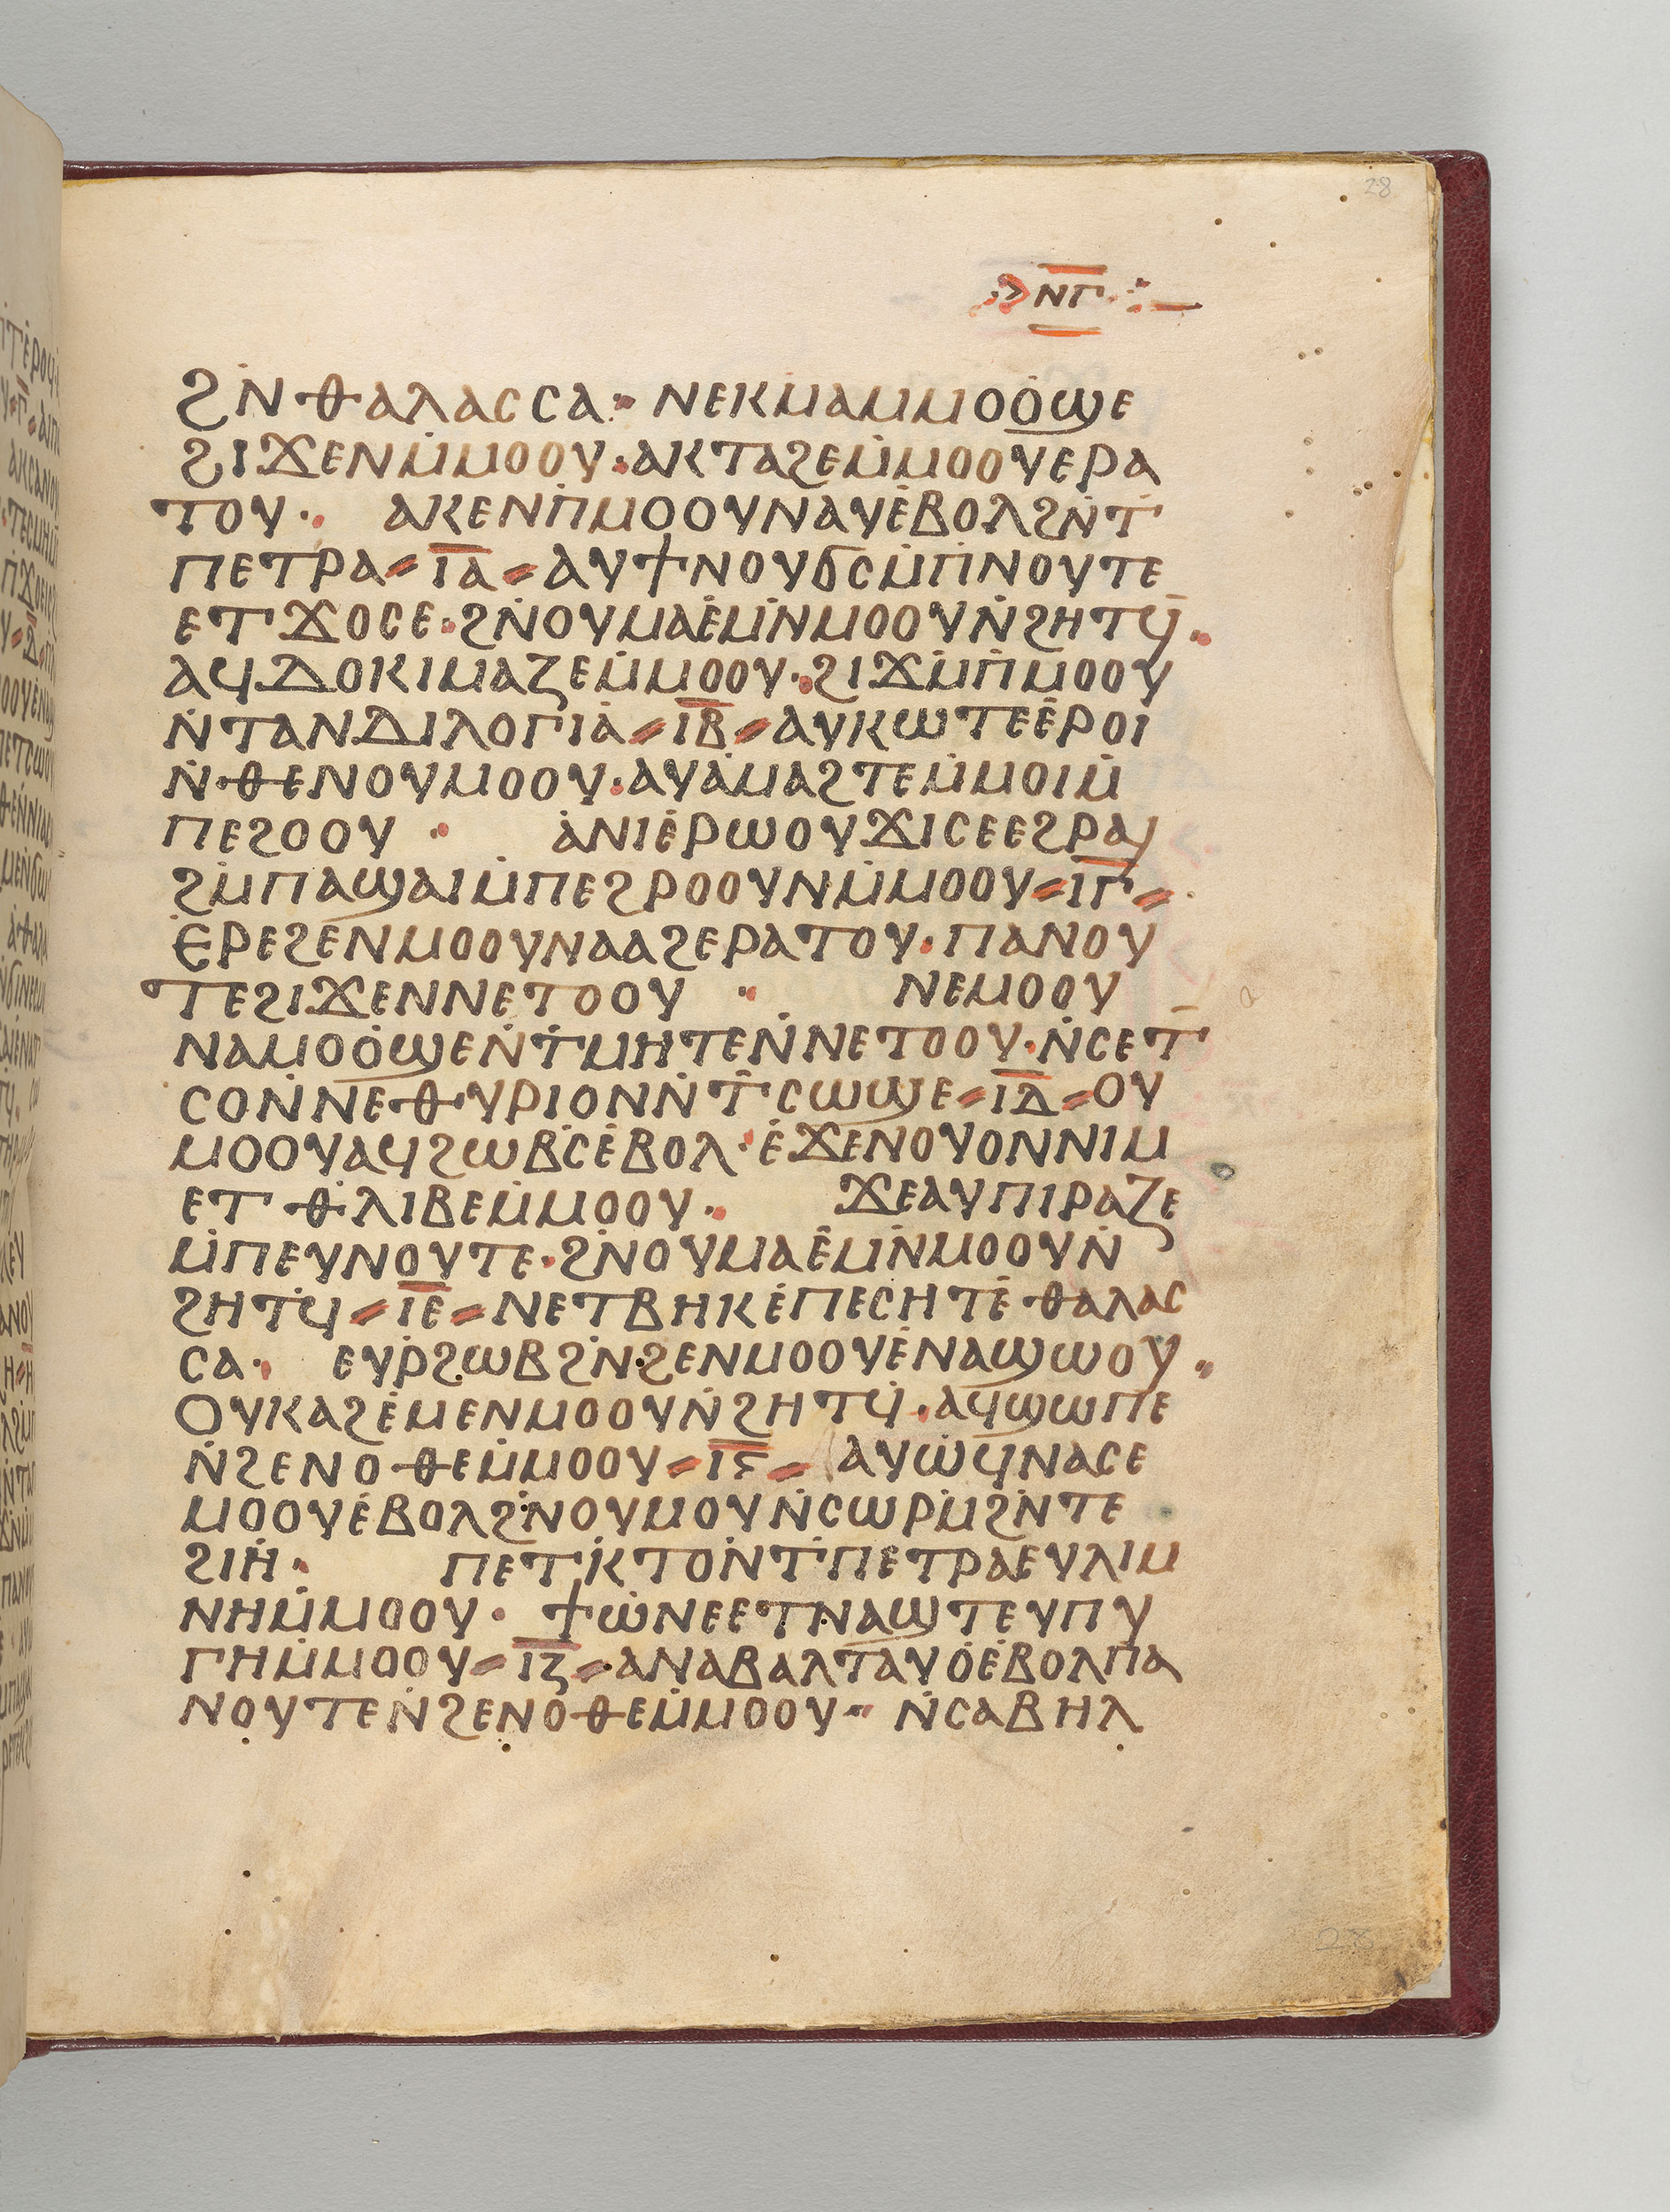 28
ⲛⲅ
ϩⲛ̇ⲑⲁⲗⲁⲥⲥⲁ: ⲛⲉⲕⲙⲁⲙⲙⲟⲟ̇ϣⲉ
ϩⲓϫⲉⲛⲙ̇ⲙⲟⲟⲩ·ⲁⲕⲧⲁϩⲉⲙ̇ⲙⲟⲟⲩⲉⲣⲁ
ⲧⲟⲩ· ⲁⲕⲉⲛⲡ̇ⲙⲟⲟⲩⲛⲁⲩⲉ̇ⲃⲟⲗϩⲛ̇ⲧ̇
ⲡⲉⲧⲣⲁ=ⲓ̅ⲁ̅=ⲁⲩϯⲛⲟⲩϭⲥⲙ̇ⲡ̇ⲛⲟⲩⲧⲉ
ⲉⲧϫⲟⲥⲉ·ϩⲛ̇ⲟⲩⲙⲁⲉ̇ⲙⲛ̇ⲙⲟⲟⲩⲛ̇ϩⲏⲧϥ̇·
ⲁϥⲇⲟⲕⲓⲙⲁⲍⲉⲙ̇ⲙⲟⲟⲩ·ϩⲓϫⲙ̇ⲡ̇ⲙⲟⲟⲩ
ⲛ̇ⲧⲁⲛⲇⲓⲗⲟⲅⲓⲁ̇=ⲓ̅ⲃ̅=ⲁⲩⲕⲱⲧⲉⲉ̇ⲣⲟⲓ
ⲛ̇ⲑⲉⲛⲟⲩⲙⲟⲟⲩ·ⲁⲩⲁ̇ⲙⲁϩⲧⲉⲙ̇ⲙⲟⲓⲙ̇
ⲡⲉϩⲟⲟⲩ · ⲁ̇ⲛⲓⲉ̇ⲣⲱⲟⲩϫⲓⲥⲉⲉϩⲣⲁⲓ
ϩⲙ̇ⲡⲁϣⲁⲓⲙ̇ⲡⲉϩⲣⲟⲟⲩⲛⲙ̇ⲙⲟⲟⲩ=ⲓ̅ⲅ̅=
ⲉ̇ⲣⲉϩⲉⲛⲙⲟⲟⲩⲛⲁⲁϩⲉⲣⲁⲧⲟⲩ·ⲡⲁⲛⲟⲩ
ⲧⲉϩⲓϫⲉⲛⲛⲉⲧⲟⲟⲩ · ⲛⲉⲙⲟⲟⲩ
ⲛⲁⲙⲟⲟ̇ϣⲉⲛ̇ⲧ̇ⲙⲏⲧⲉⲛ̇ⲛⲉⲧⲟⲟⲩ·ⲛ̇ⲥⲉⲧ̇
ⲥⲟⲛ̇ⲛⲉⲑⲩⲣⲓⲟⲛⲛ̇ⲧ̇ⲥⲱϣⲉ=ⲓ̅ⲇ̅=ⲟⲩ
ⲙⲟⲟⲩⲁϥϩⲱⲃ̇ⲥⲉ̇ⲃⲟⲗ·ⲉ̇ϫⲉⲛⲟⲩⲟⲛⲛⲓⲙ
ⲉⲧⲑ̇ⲗⲓⲃⲉⲙ̇ⲙⲟⲟⲩ· ϫⲉⲁⲩⲡⲓⲣⲁⲍⲉ
ⲙ̇ⲡⲉⲩⲛⲟⲩⲧⲉ·ϩⲛ̇ⲟⲩⲙⲁⲉ̇ⲙⲛ̇ⲙⲟⲟⲩⲛ̇
ϩⲏⲧϥ̇=ⲓ̅ⲉ̅=ⲛⲉⲧⲃⲏⲕⲉ̇ⲡⲉⲥⲏⲧⲉ̇ⲑⲁⲗⲁⲥ
ⲥⲁ· ⲉⲩⲣ̇ϩⲱⲃϩⲛ̇ϩⲉⲛⲙⲟⲟⲩⲉ̇ⲛⲁϣⲱⲟⲩ·
ⲟⲩⲕⲁϩⲉ̇ⲙⲉⲛⲙⲟⲟⲩⲛ̇ϩⲏⲧϥ̇·ⲁϥϣⲱⲡⲉ
ⲛ̇ϩⲉⲛⲟⲑⲉⲙ̇ⲙⲟⲟⲩ=ⲓ̅ⲋ̅=ⲁⲩⲱ̇ϥⲛⲁⲥⲉ
ⲙⲟⲟⲩⲉ̇ⲃⲟⲗϩⲛ̇ⲟⲩⲙⲟⲩⲛ̇ⲥⲱⲣⲙ̇ϩⲛ̇ⲧⲉ
ϩⲓⲏ̇· ⲡⲉⲧ̇ⲕⲧⲟⲛ̇ⲧ̇ⲡⲉⲧⲣⲁⲉⲩⲗⲓⲙ
ⲛⲏⲙ̇ⲙⲟⲟⲩ· ϯⲱ̇ⲛⲉⲉⲧⲛⲁϣⲧⲉⲩⲡⲩ
ⲅⲏⲙ̇ⲙⲟⲟⲩ=ⲓ̅ⲍ̅=ⲁⲛⲁⲃⲁⲗⲧⲁⲩⲟ̇ⲉ̇ⲃⲟⲗⲡⲁ
ⲛⲟⲩⲧⲉⲛ̇ϩⲉⲛⲟⲑⲉⲙ̇ⲙⲟⲟⲩ· ⲛ̇ⲥⲁⲃⲏⲗ
28